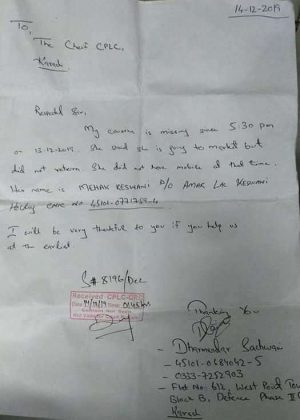 14-12-2019
To,
The Chief CPLC,
Karachi
Respected Sir,
My cousin is missing since 5:30 pm
on 13-12-2019. She said she is going to market but
did not return. She did not have mobile at that time.
Her name is MEHAK KESWANI D/O AMAR LAL KESWANI
45101-0771769-4
I will be very thankful to you if you help us
at the earliest.
S# 8196/Dec
Received CPLC-CRC
Date 14/12/19 Time
Thanking You
Dharmendar Sachwani
- 45101-0684042-5
- 0333-7252903
- Flat No 612, West Point Tow
Block B, Defence Phase II
Karachi